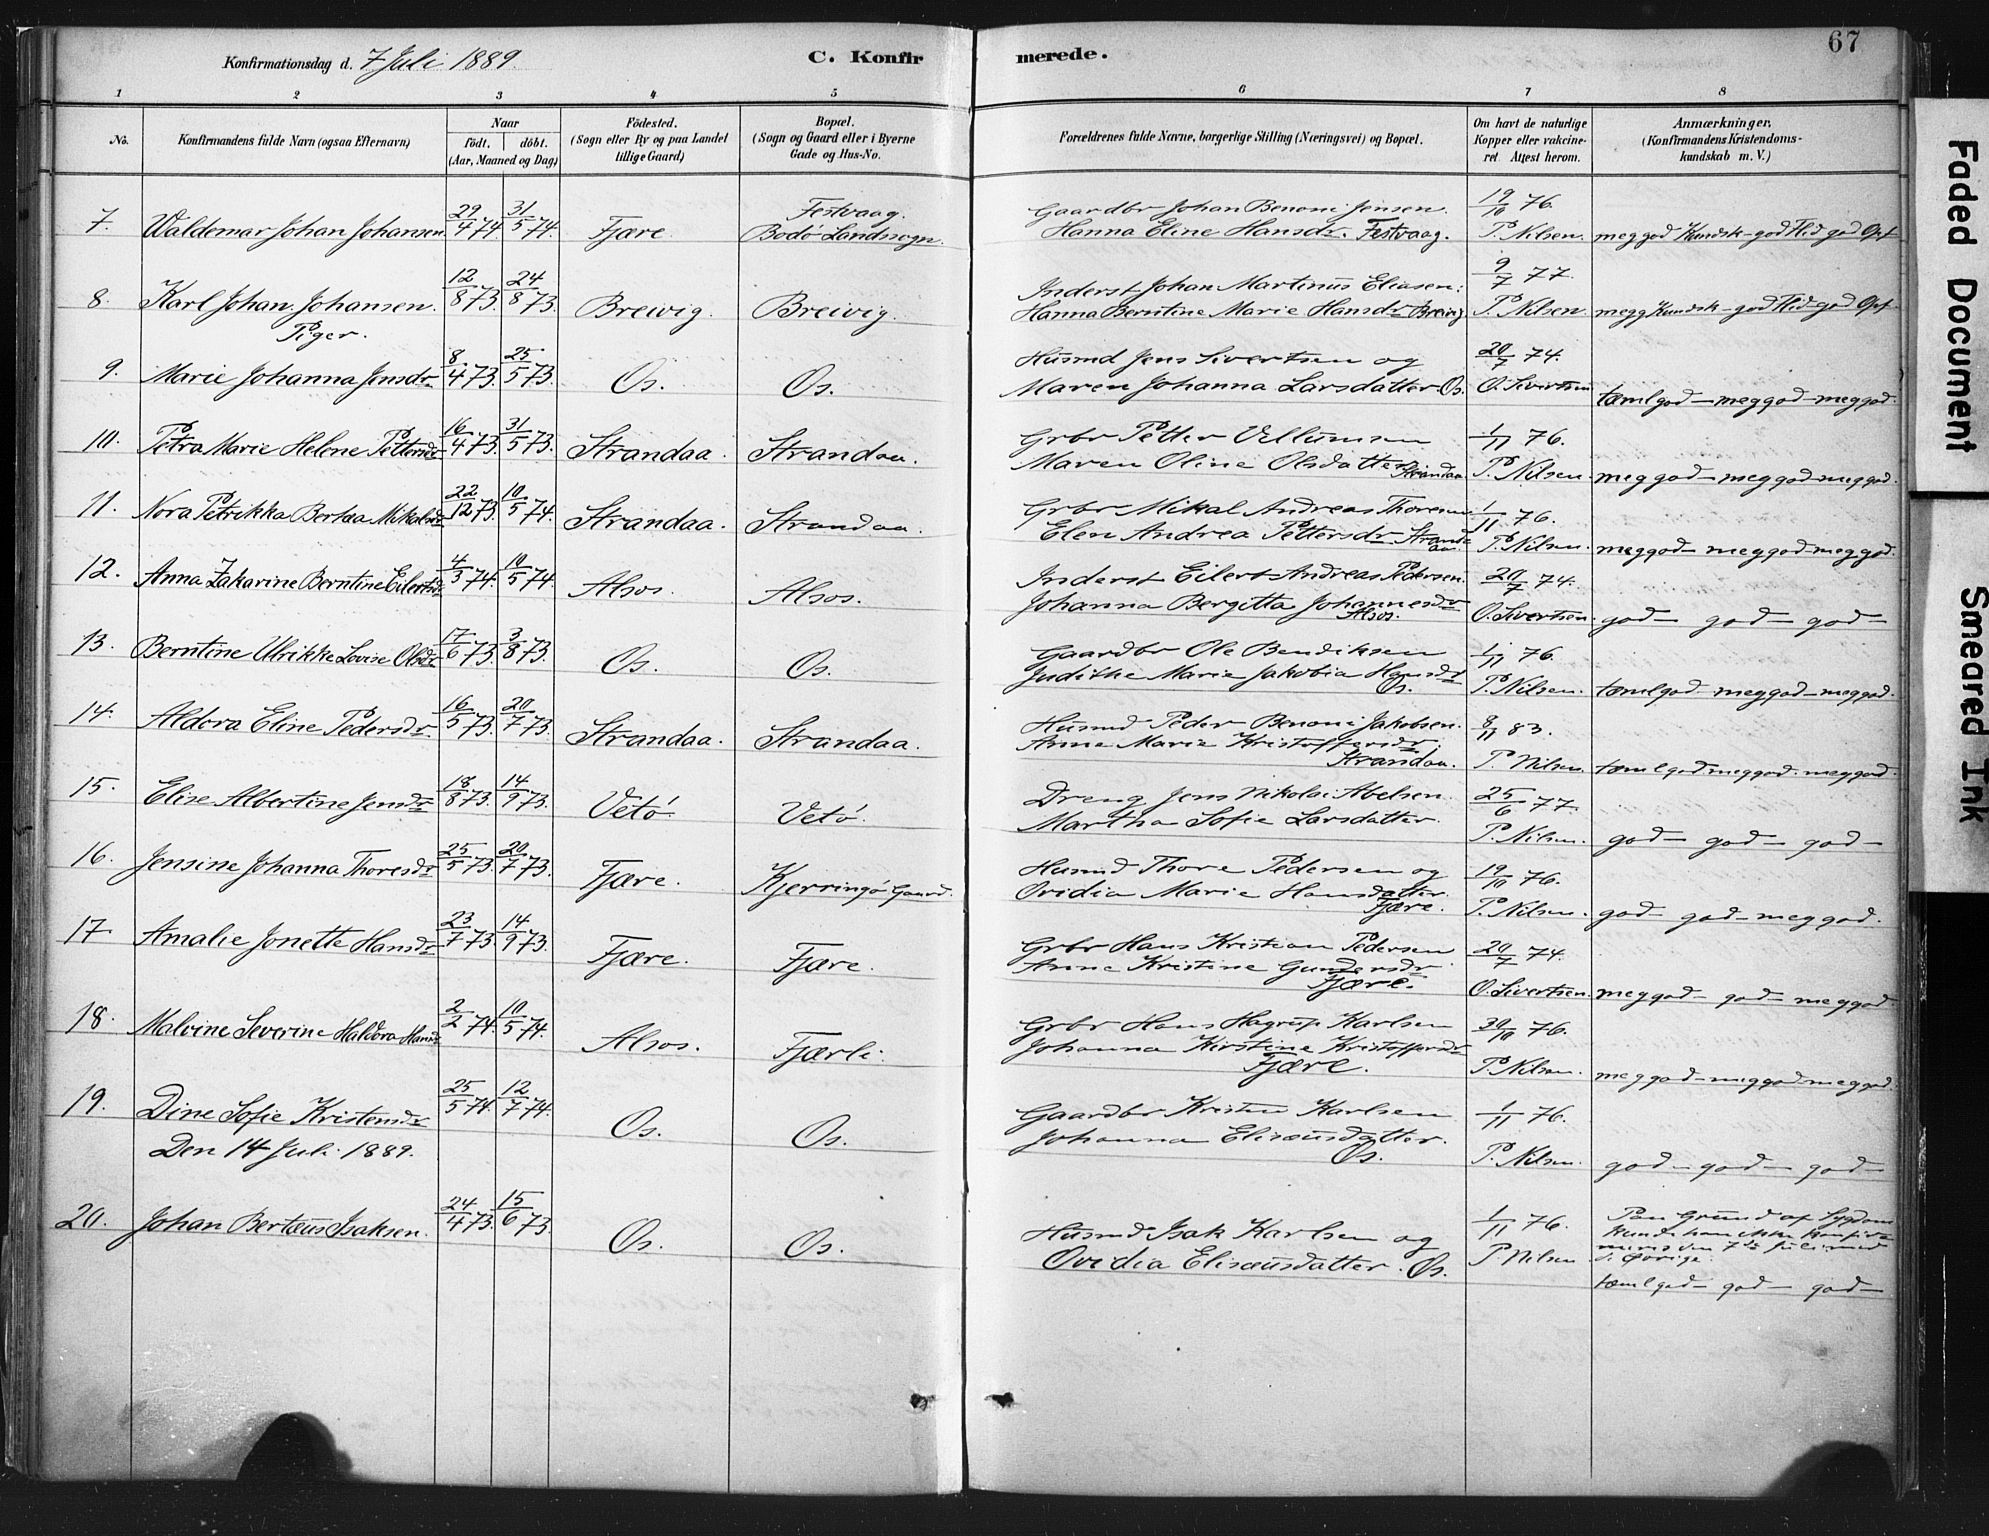 Konfirmationsdag d. 7 Juli 1889.
C. Konfirmerede.
67
1 2 3 4 5 6 7 8
No.
Konfirmandens fulde Navn (ogsaa Efternavn)
Naar
født. døbt.
(Aar, Maaned og Dag)
Fødested.
(Sogn eller By og paa Landet
tillige Gaard)
Bopæl.
(Sogn og Gaard eller i Byerne
Gade og Hus-No.
Forældrenes fulde Navne, borgerlige Stilling (Næringsvei) og Bopæl.
Om havt de naturlige
Kopper eller vakcine-
ret. Attest herom.
Anmærkninger,
(Konfirmandens Kristendoms-
kundskab m. V.)
7. Waldemar Johan Johansen 29/4 74 31/5 74. Fjære. Festvaag. Bodø Landssogn. Gaardbr Johan Benoni Jensen. Hanna Eline Hansdr. Festvaag. 19/10 76. P. Nilsen. meg god Kundsk - god Flid god Opf
8. Karl Johan Johansen. 12/8 73. 24/8 73. Breivig. Breivig. Inderst Johan Martinus Eliasen. Hanna Berntine Marie Hansdr Breivig 9/7 77 P. Nilsen meg g Kundsk - god Flid god Opf
Piger.
9. Marie Johanna Jensdr 8/4 73. 25/5 73. Os. Os. Husmd Jens Sivertsen og Maren Johanna Larsdatter Os. 20/7 74. O. Sivertsen tæml god - meg god - meg god.
10. Petra Marie Helene Pettersdr 16/4 73. 31/5 73. Strandaa. Strandaa. Grbr Petter Villumsen Maren Oline Olsdatter Strandaa. 1/11 76. P. Nilsen meg god - meg god - meg god.
11. Nora Petrikka Bertaa Mikalsdr 22/12 73. 10/5 74. Strandaa. Strandaa. Grbr Mikal Andreas Thoresen Elen Andrea Pettersdr Strandaa. 1/11 76. P. Nilsen. meg god - meg god meg god.
12. Anna Zakarine Berntine Eilertsdr 4/3 74. 10/5 74. Alsos. Alsos. Inderst Eilert Andreas Pedersen. Johanna Bergitta Johannesdr Alsos. 20/7 74. O. Sivertsen. god - god - god -
13. Berntine Ulrikke Lovise Olsdr 17/6 73. 3/8 73. Os. Os. Gaardbr Ole Bendiksen Judithe Marie Jakobia Hansdr Os. 1/11 76. P. Nilsen. tæml god - meg god - meg god.
14. Aldora Eline Pedersdr. 16/5 73. 20/7 73. Strandaa. Strandaa. Husmd Peder Benoni Jakobsen. Anne Marie Kristoffersdr. Strandaa. 8/11 83. P. Nilsen. tæml god meg god. meg god.
15. Elise Albertine Jensdr 18/8 73. 14/9 73. Vetø. Vetø. Dreng Jens Nikolai Abelsen. Martha Sofie Larsdatter. 25/6 77. P. Nilsen. god - god - god -
16. Jensine Johanna Thoresdr 25/5 73. 20/7 73. Fjære. Kjerringø Gaard. Husmd Thore Pedersen og Ovidia Marie Hansdatter. Fjære. 19/10 76. P. Nilsen. god - god - meg god.
17. Amalie Jonette Hansdr 23/7 73. 14/9 73. Fjære. Fjære. Grbr Hans Kristian Pedersen Anne Kristine Gundersdr Fjære. 20/7 74. O. Sivertsen. meg god - god - meg god
18. Malvine Severine Haldora Hansdr 2/2 74. 10/5 74. Alsos. Fjærli. Grbr Hans Hagrup Karlsen Johanna Kirstine Kristoffersdr Fjære. 30/10 76. P. Nilsen. meg god - meg god meg god.
19. Dine Sofie Kristensdr 25/5 74. 12/7 74. Os. Os. Gaardbr Kristen Karlsen Johanna Elisæusdatter. Os. 1/11 76. P. Nilsen. god - god - god -
Den 14 Juli 1889.
20. Johan Bertæus Isaksen. 24/4 73. 15/6 73. Os. Os. Husmd Isak Karlsen og Ovidia Elisæusdatter. Os. 1/11 76. P. Nilsen Paa Grund af Sygdom kunde han ikke konfirmeres den 7de Juli med de Øvrige. tæml god - god - god -
Faded Document
Smeared Ink